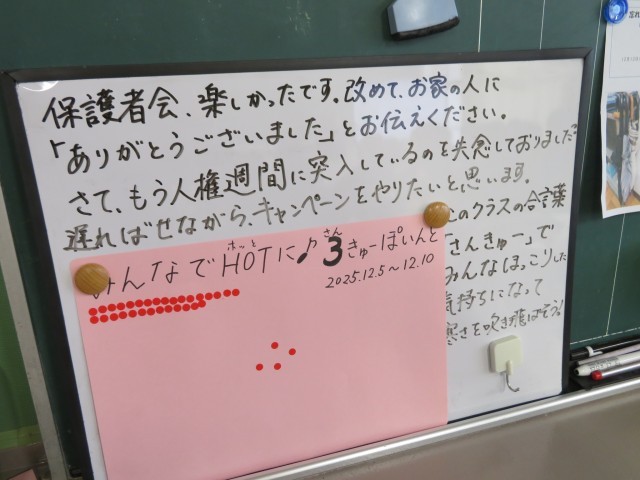 保護者会、楽しかったです。改めて、お家の人に
「ありがとうございました」とお伝えください。
さて、もう人権週間に突入しているのを失念しておりました。
遅ればせながら、キャンペーンをやりたいと思います。
このクラスの合言葉
「さんきゅー」で
みんなほっこりした
気持ちになって
寒さを吹き飛ばそう!
みんなでHOTに♪3きゅーぽいんと
ホッと
さん
2025.12.5〜12.10